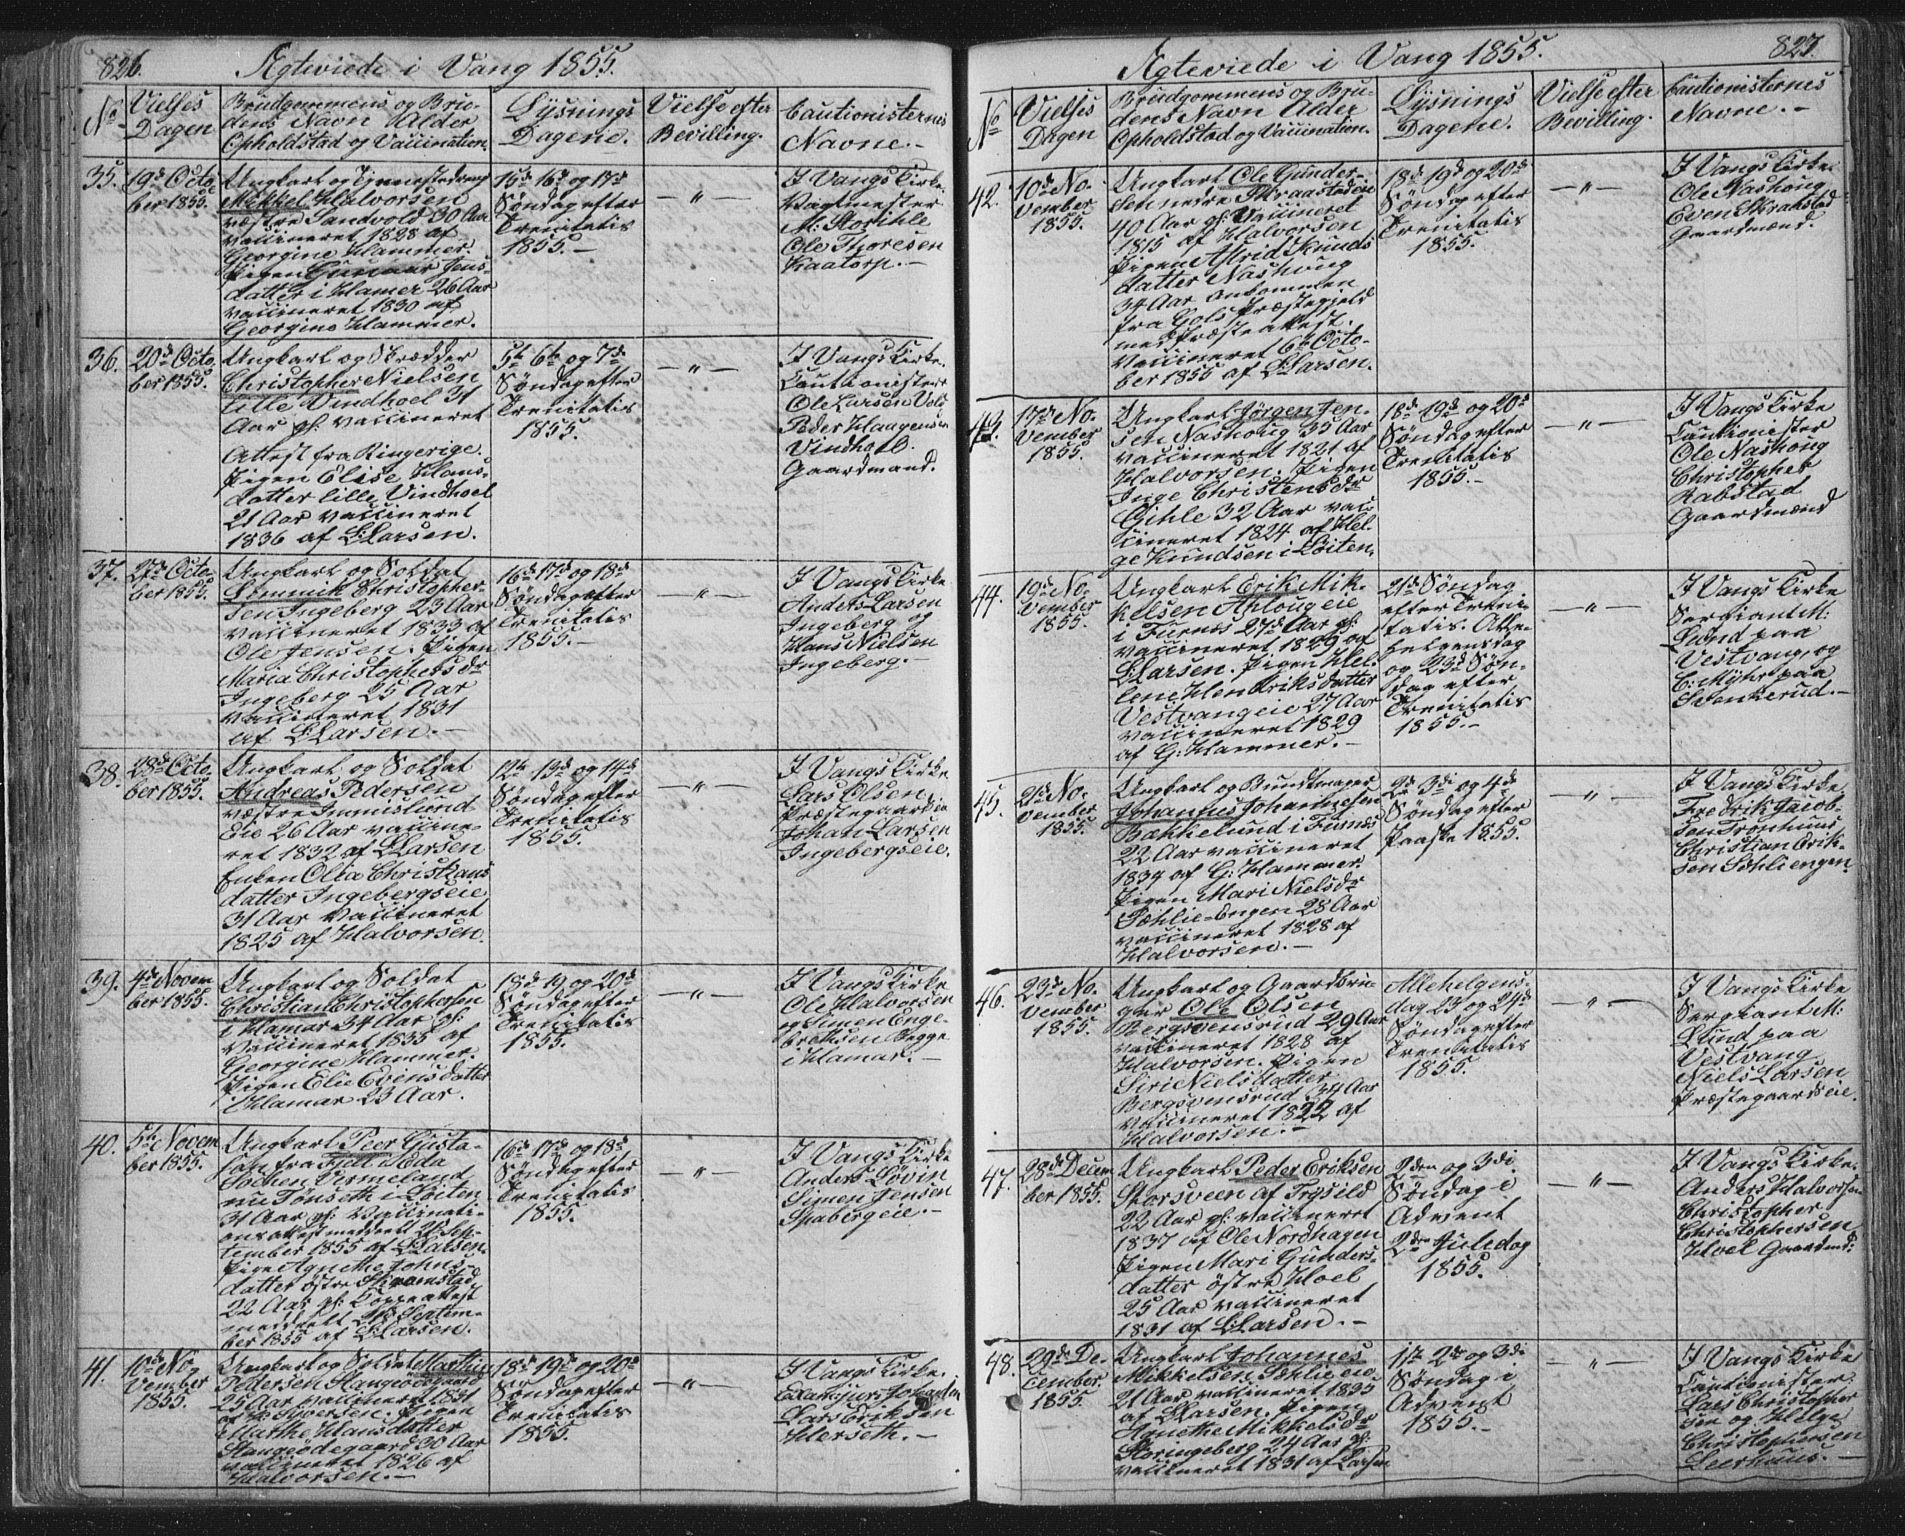 826.
Ægteviede i Vang 1855.
No
Vielses Dagen
Brudgommens og Brudens Navn Alder Opholdstad og Vaccination.
Lysnings Dagene.
Vielse efter Bevilling.
Cautionisternes Navne.—
35.
19de October 1855.
Ungkarl og
Mikkel Halvorsen
vestre Sandvold 30 Aar
vaccineret 1828 af
Georgine Hammer
Pigen Gunnor Jens-
datter i Hamer 26 Aar
vaccineret 1830 af
Georgine Hammer.
15de 16de og 17de
Søndag efter
Trenitatis
1855.—
— " —
I Vangs Kirke.
Vagtmester
M: Storihle
Ole Thoresen
Kaatorp.—
36.
20de October 1855.
Ungkarl og Skrædder
Christopher Nielsen
lille Vindhoel 31
Aar gl: vaccineret
Attest fra Ringerige.
Pigen Elise Hans-
datter lille Vindhoel
21 Aar vaccineret
1836 af L: Larsen.
5te 6te og 7de
Søndag efter
Trenitatis
1855.
— " —
I Vangs Kirke.
Cautionister
Ole Larsen Vold
Peder Haagensen
Vindhoel.
Gaardmænd.
37.
27de October 1855.
Ungkarl og Soldat
Lemmik Christopher-
sen Ingeberg 23 Aar
vaccineret 1833 af
Ole Jensen. Pigen
Maria Christophersdr
Ingeberg 25 Aar
vaccineret 1831
af L: Larsen.—
16de 17de og 18de
Søndag efter
Trenitatis
1855.—
— " —
I Vangs Kirke
Anders Larsen
Ingeberg og
Hans Nielsen
Ingeberg.—
38.
28de October 1855.
Ungkarl og Soldat
Andreas Pedersen
vestre Immislund
Eie 26 Aar vaccine-
ret 1832 af L: Larsen
Enken Olea Christians
datter Ingebergseie
31 Aar vaccineret
1825 af Halvorsen.
12te 13de og 14de
Søndag efter
Trenitatis
1855.
— " —
I Vangs Kirke
Lars Olsen
Præstegaardseie
Johan Larsen
Ingebergseie.
39.
4de November 1855.
Ungkarl og Soldat
Christian Christophersen
i Hamar 34 Aar gl:
vaccineret 1835 af
Georgine Hammer.
Pigen Elie Evensdatter
i Hamar 23 Aar.
18de 19 og 20de
Søndag efter
Trenitatis
1855.
— " —
I Vangs Kirke
Ole Halvorsen
og Simen Enge-
bretsen Begge
i Hamar.—
40.
5te November 1855.
Ungkarl Peer Gusta-
son fra Fjell i Eda
Sochen Vermeland
nu Tønseth i Løiten
31 Aar gl: Vaccinati-
onsattest meddelt 21 Sep-
tember 1855 af L: Larsen.
Pige Agnethe Johns-
datter østre Skramstad
22 Aar gl: Koppeattest
meddelt Septem-
ber 1855 af L: Larsen.
16de 17de og 18de
Søndag efter
Trenitatis
1855.
— " —
I Vangs Kirke
Anders Løvin
Simen Jensen
Spabergeie.—
41.
10de November 1855.
Ungkarl og Soldat Mathias
Pedersen Stangeødegaard
25 Aar vaccineret 1831
af Sjversen. Pigen
Marthe Hansdatter
Stangeødegaard 30 Aar
vaccineret 1826 af
Halvorsen.—
18de 19de og 20de
Søndag efter
Trenitatis
1855.
— " —
I Vangs Kirke.
Exam: jur: Johansen
Lars Eriksen
Herseth.—
Ægteviede i Vang 1855.
827.
No
Vielses Dagen
Brudgommens og Brudens Navn Alder Opholdstad og Vaccination.
Lysnings Dagene.
Vielse efter Bevilling.
Cautionisternes Navne.—
42.
10de November 1855.
Ungkarl Ole Gunder-
sen nedre Skraastadeie
40 Aar gl: Vaccineret
1815 af Halvorsen
Pigen Astrid Knuds
datter Nashoug
34 Aar ankommen
fra Gols Præstegjeld
med Præsteattest.
Vaccineret 6te Octo-
ber 1855 af L: Larsen.
18de 19de og 20de
Søndag efter
Trenitatis
1855.
— " —
I Vangs Kirke.
Ole Nashoug
Even Skrahstad
Gaardmænd.
43.
17de November 1855.
Ungkarl Jørgen Jen-
sen Nashoug 35 Aar
vaccineret 1821 af
Halvorsen. Pigen
Inge Christensdr
Gihle 32 Aar vac-
cineret 1824 af Hel-
ge Knudsen i Løiten.
18de 19de og 20de
Søndag efter
Trenitatis
1855.—
— " —
I Vangs Kirke
Cautionister
Ole Nashoug
Christopher
Rabstad
Gaardmænd
44.
19de November 1855.
Ungkarl Erik Mik-
kelsen Aplougeie
i Furnes 27de Aar gl:
vaccineret 1829 af
L: Larsen. Pigen Hel-
ene Henriksdatter
Vestvangeie 27 Aar
vaccineret 1829
af G: Hammer.—
21de Søndag
efter Treni-
tatis. Alle-
helgensdag
og 23de Søn-
dag efter
Trenitatis
1855.—
— " —
I Vangs Kirke
Sergiant M:
Lund paa
Vestvang, og
C: Myhr paa
Svenkerud.—
45.
21de November 1855.
Ungkarl og Bundtmager
Johannes Johannesen
Bækkelund i Furnes
22 Aar vaccineret
1834 af G: Hammer
Pigen Mari Nielsdr
Sæhlie-Engen 28 Aar
vaccineret 1828 af
Halvorsen.—
2de 3di og 4de
Søndag efter
Paaske 1855.
— " —
I Vangs Kirke
Fredrik Jacob-
sen Tronhuus
Christian Erik-
sen Sæhliengen
46.
23de November 1855.
Ungkarl og Gaardbru-
ger Ole Olsen
Bergsvensrud 29 Aar
vaccineret 1828 af
Halvorsen. Pigen
Siri Nielsdatter
Bergsvensrud 34 Aar
vaccineret 1822 af
Halvorsen.—
Allehelgens-
dag 23 og 24de
Søndag efter
Trenitatis
1855.
— " —
I Vangs Kirke
Sergiant M:
Lund paa
Vestvang
Niels Larsen
Præstegaardseie.
47.
28de December 1855.
Ungkarl Peder Eriksen
Storsveen af Trysild
22 Aar gl: vaccineret
1837 af Ole Nordhagen
Pigen Mari Gunders-
datter østre Hoel
25 Aar vaccineret
1831 af L: Larsen.—
2den og 3di
Søndag i
Advent
2den Juledag
1855.
— " —
I Vangs Kirke.
Anders Halvorsen
Christopher
Christophersen
Hoel Gaardmd:
48.
29de December 1855.
Ungkarl Johannes
Mikkelsen Sæhlieeie
21 Aar vaccineret 1835
af L: Larsen. Pigen
Agnethe Mikkelsdr
Storingeberg 24 Aar gl:
vaccineret 1831 af Larsen
1ste 2den og 3di
Søndag i
Advent
1855.—
— " —
I Vangs Kirke
Cautionister:
Lars Christopher-
sen og Helge
Christophersen
Leerhuus.—